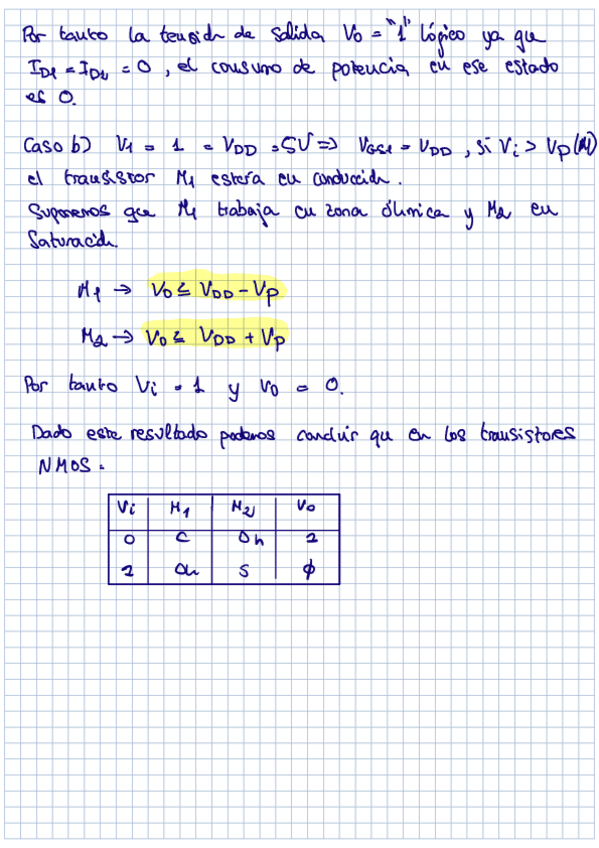 Por tanto la tensión de salida V₀ = "1" lógico ya que
I_D1 = I_D2 = 0, el consumo de potencia en ese estado
es 0.
Caso b) V₁ = 1 = V_DD = 5V ⇒ V_GS1 = V_DD, si Vi > Vp(M1)
el transistor M₁ estaría en conducción.
Suponemos que M₁ trabaja en zona óhmica y M₂ en
Saturación.
M₁ → V₀ ≤ V_DD - V_P
M₂ → V₀ ≤ V_DD + V_P
Por tanto Vi = 1 y V₀ = 0.
Dado este resultado podemos concluir que en los transistores
NMOS:
Vi M₁ M₂ V₀
0 C Oh 1
1 Oh S ϕ